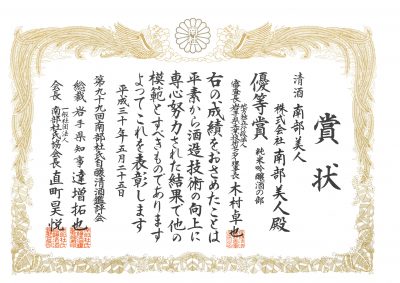 賞状
清酒 南部美人
株式会社 南部美人 殿
優等賞 純米吟醸酒の部
地方独立行政法人
木村卓也
右の成績をおさめたことは
平素から酒造技術の向上に
専心努力された結果で他の
模範とすべきものであります
よってこれを表彰します
平成三十年五月二十五日
第九十九回南部杜氏自醸清酒鑑評会
総裁 岩手県知事 達増拓也
一般社団法人
会長 南部杜氏協会会長 直町昊悦